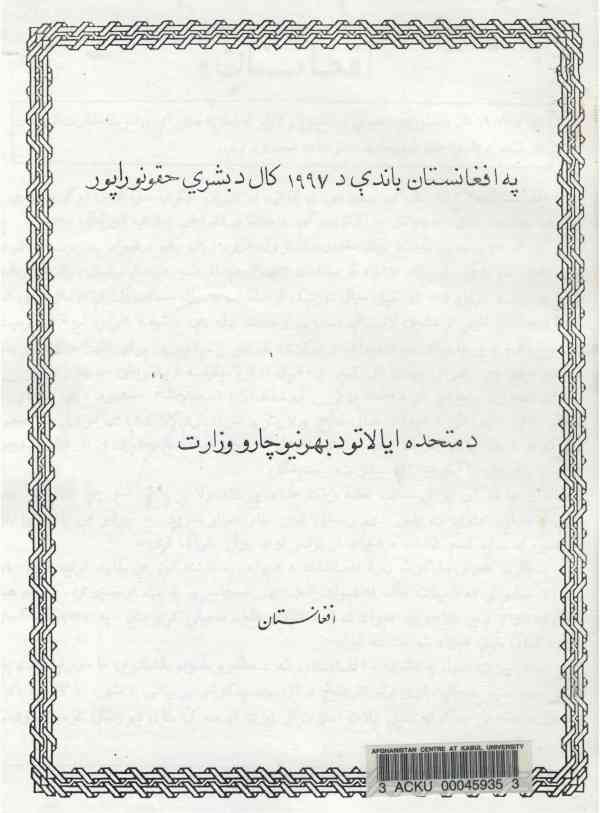 په افغانستان باندي د ۱۹۹۷ كال د بشري حقونو راپور
د متحده ايالاتو د بهرنيو چارو وزارت
افغانستان
AFGHANISTAN CENTRE AT KABUL UNIVERSITY
3 ACKU 00045935 3